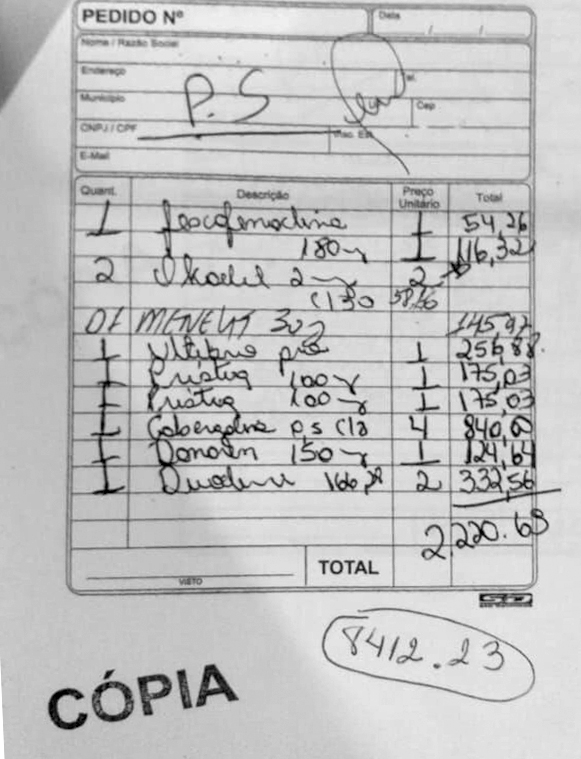 PEDIDO Nº
Data / /
Nome / Razão Social
Endereço
Tel.
Município
U.F.
Cep
CNPJ / CPF
Insc. Est.
E-Mail
P.S
Quant. Descrição Preço Unitário Total
1 fexofenadina 1 54,26
180 1 116,32
2 2 2
c/30 58,16
01 MENELAT 30 145,97
1 pró 1 256,88
1 Pristiq 100 1 175,03
1 Pristiq 100 1 175,03
1 Cabergolina 0,5 c/8 4 840,00
1 Donaren 150 1 124,64
1 166,28 2 332,56
2.220.69
VISTO
TOTAL
8412.23
CÓPIA